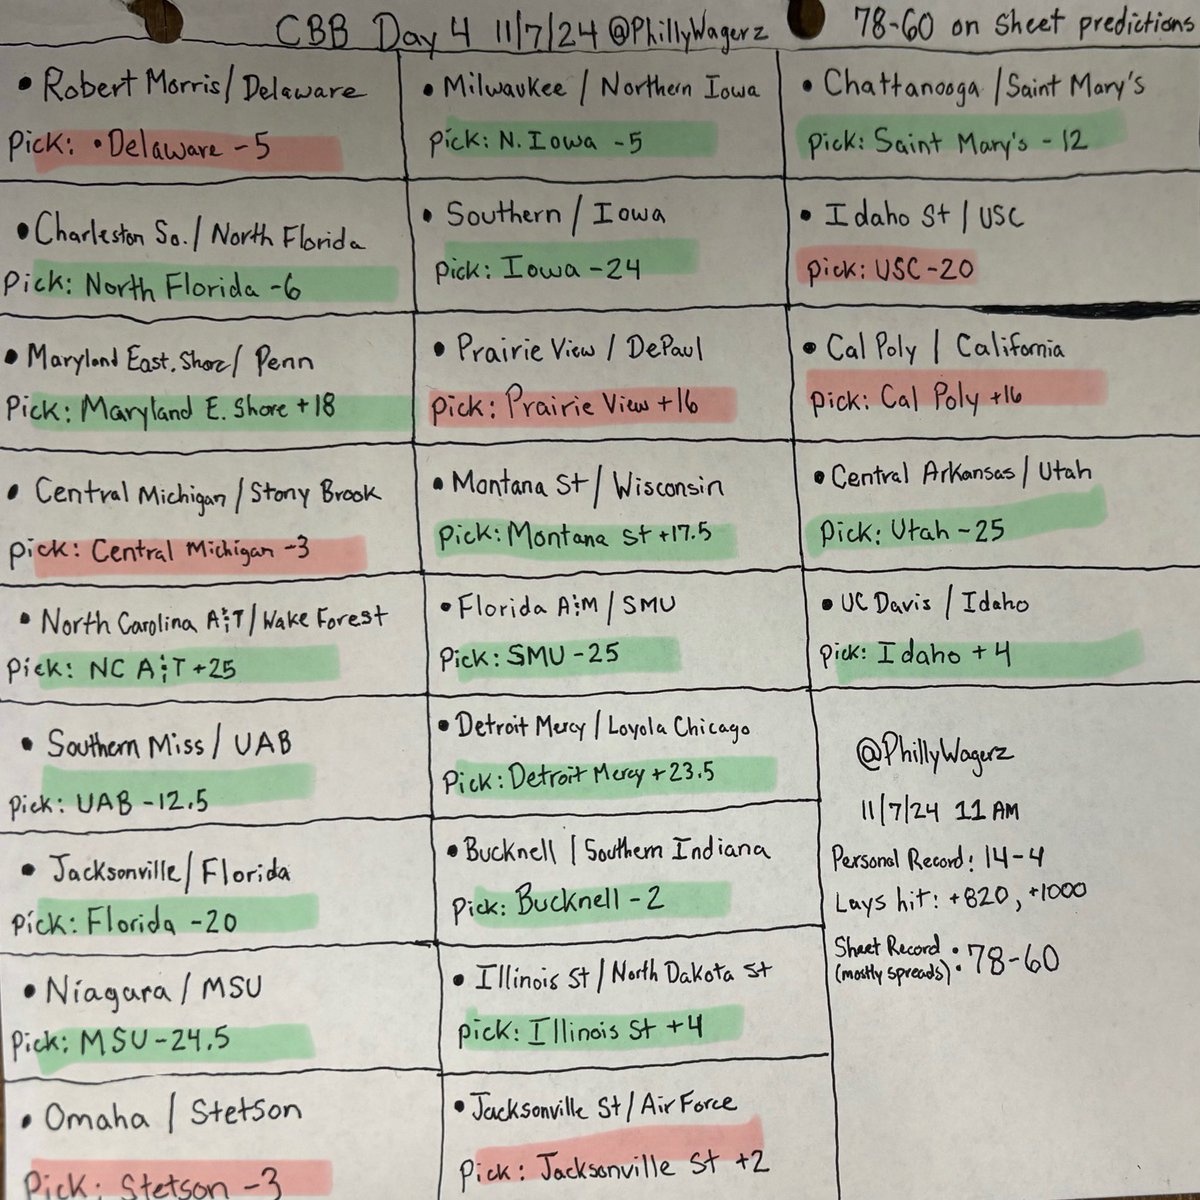 CBB Day 4 11/7/24 @PhillyWagerz
78-60 on sheet predictions
• Robert Morris/Delaware
Pick: •Delaware -5
• Charleston So./North Florida
Pick: North Florida -6
• Maryland East. Shore/Penn
Pick: Maryland E. Shore +18
• Central Michigan/Stony Brook
Pick: Central Michigan -3
• North Carolina A&T/Wake Forest
Pick: NC A&T +25
• Southern Miss/UAB
Pick: UAB -12.5
• Jacksonville/Florida
Pick: Florida -20
• Niagara/MSU
Pick: MSU -24.5
• Omaha/Stetson
Pick: Stetson -3
• Milwaukee/Northern Iowa
Pick: N. Iowa -5
• Southern/Iowa
Pick: Iowa -24
• Prairie View/DePaul
Pick: Prairie View +16
• Montana St/Wisconsin
Pick: Montana St +17.5
• Florida A&M/SMU
Pick: SMU -25
• Detroit Mercy/Loyola Chicago
Pick: Detroit Mercy +23.5
• Bucknell/Southern Indiana
Pick: Bucknell -2
• Illinois St/North Dakota St
Pick: Illinois St +4
• Jacksonville St/Air Force
Pick: Jacksonville St +2
• Chattanooga/Saint Mary's
Pick: Saint Mary's -12
• Idaho St/USC
Pick: USC -20
• Cal Poly/California
Pick: Cal Poly +16
• Central Arkansas/Utah
Pick: Utah -25
• UC Davis/Idaho
Pick: Idaho +4
@PhillyWagerz
11/7/24 11 AM
Personal Record: 14-4
Lays hit: +820, +1000
Sheet Record
(mostly spreads): 78-60